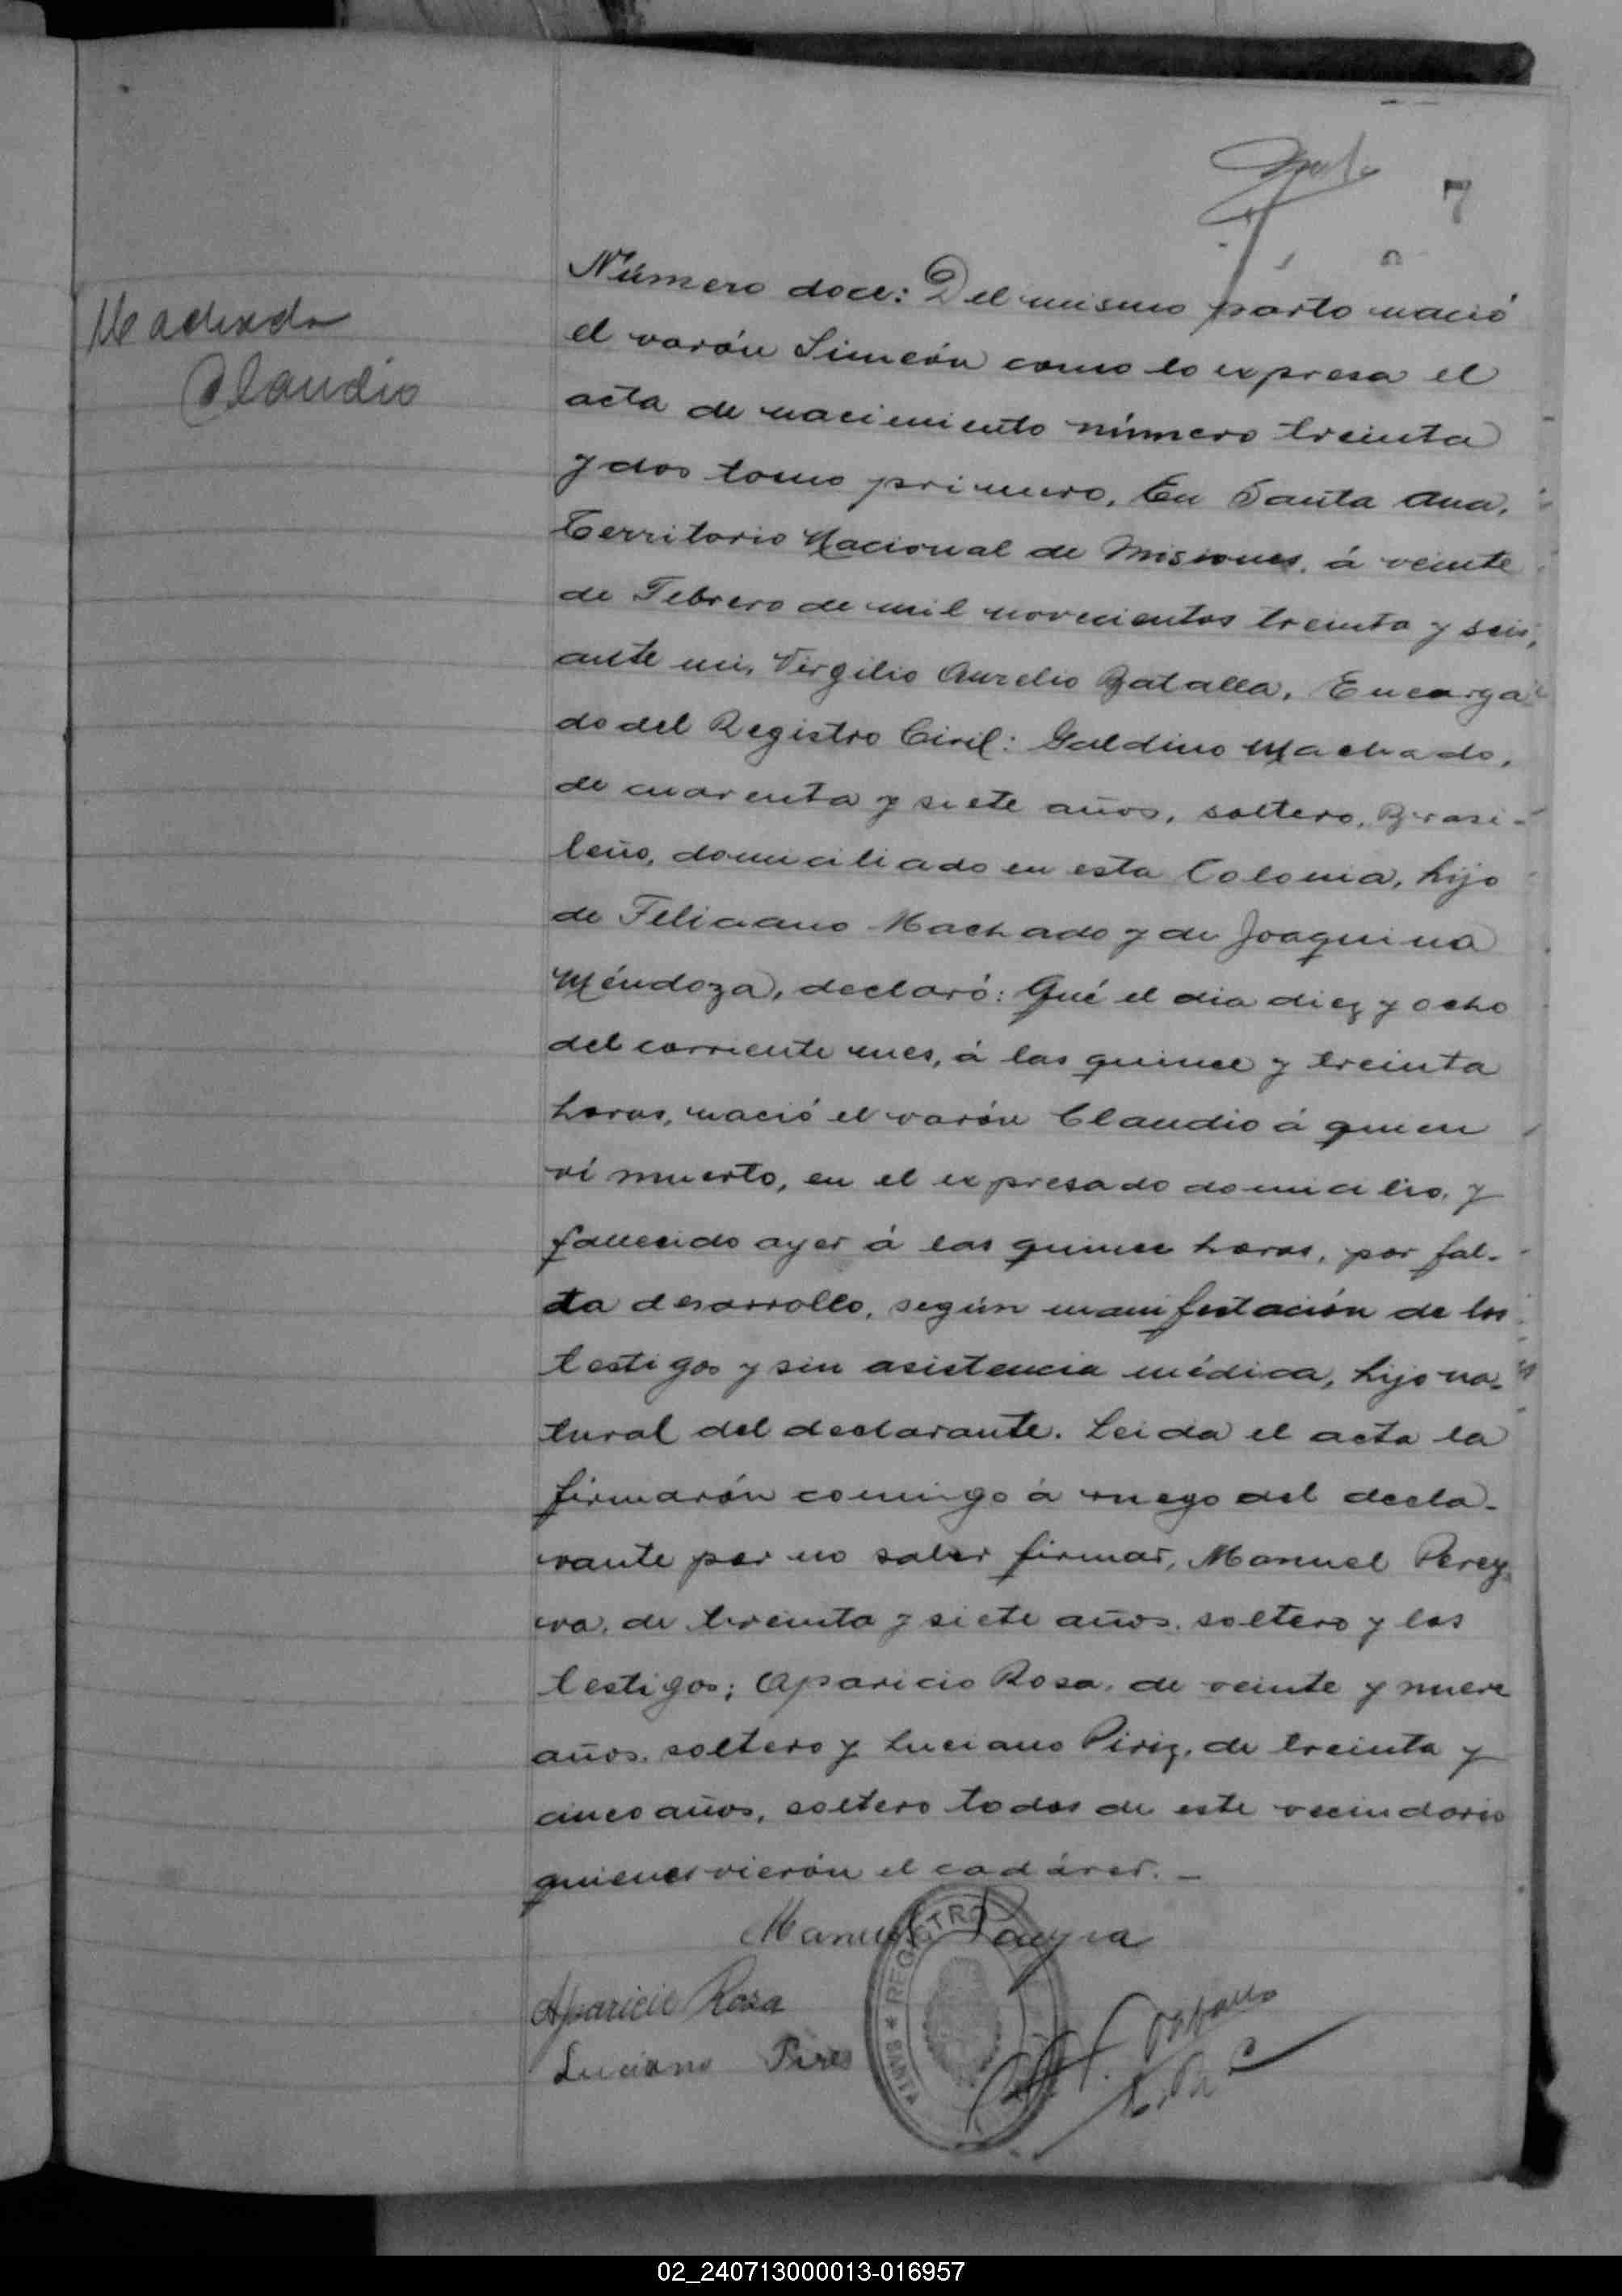 7
Machado
Claudio
Número doce: Del mismo parto nació
el varón Simeón como lo expresa el
acta de nacimiento número treinta
y dos tomo primero, En Santa Ana,
Territorio Nacional de Misiones, á veinte
de Febrero de mil novecientos treinta y seis,
ante mi, Virgilio Aurelio Batalla, Encarga
do del Registro Civil: Galdino Machado,
de cuarenta y siete años, soltero, Brasi-
leño, domiciliado en esta Colonia, hijo
de Feliciano Machado y de Joaquina
Méndoza, declaró: Qué el dia diez y ocho
del corriente mes, á las quince y treinta
horas, nació el varón Claudio á quien
ví muerto, en el expresado domicilio, y
fallecido ayer á las quince horas, por fal-
ta desarrollo, según manifestación de los
testigos y sin asistencia médica, hijo na-
tural del declarante. Leida el acta la
firmarón comigo á ruego del decla-
rante por no saber firmar, Manuel Perey
ra, de treinta y siete años, soltero y los
testigos; Aparicio Rosa, de veinte y nueve
años, soltero y Luciano Piriz, de treinta y
cinco años, soltero todos de este vecindario
quienes vierón el cadáver. -
Manuel
Aparicio Rosa
Luciano Pires
REGISTRO
SANTA
02_240713000013-016957